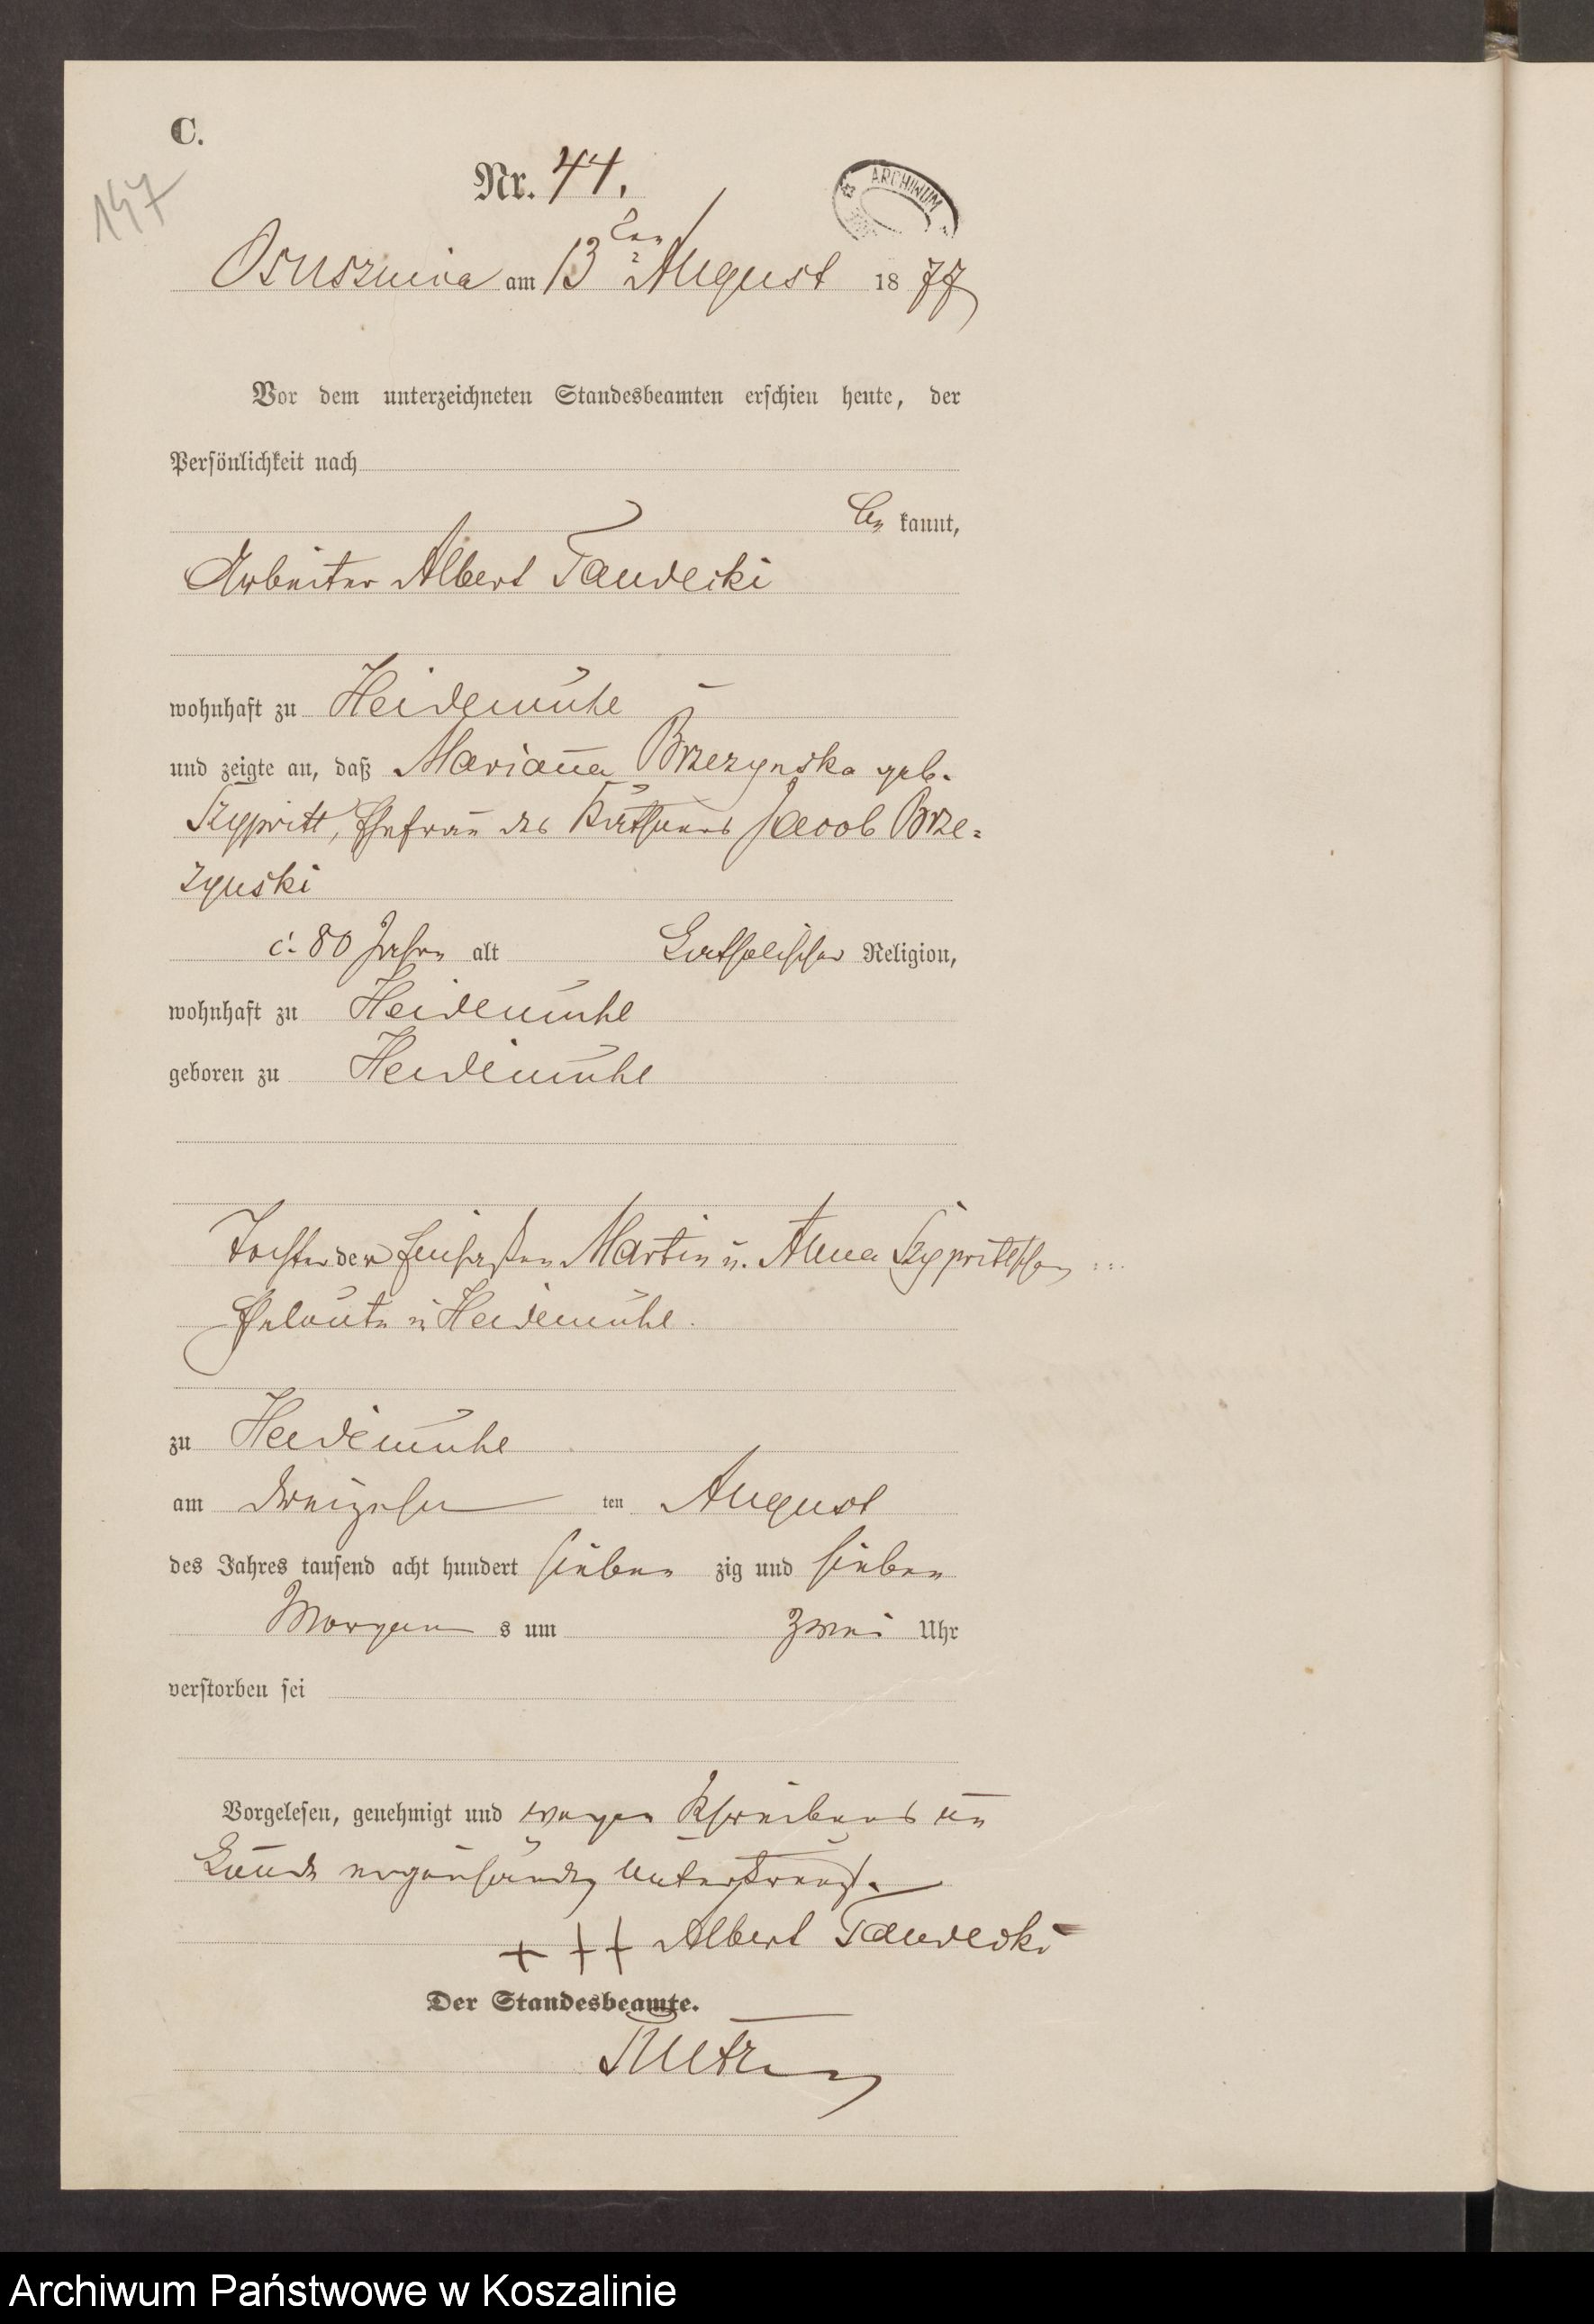 C.
147
Nr. 44.
ARCHIWUM
Osusznica am 13ten August 1877
Vor dem unterzeichneten Standesbeamten erschien heute, der
Persönlichkeit nach
be kannt,
Arbeiter Albert Tandecki
wohnhaft zu Heidemühle
und zeigte an, daß Marianna Brzezynska geb.
Szypritt, Ehefrau des Käthners Jacob Brze-
zynski
c. 80 Jahre alt katholischer Religion,
wohnhaft zu Heidemühl
geboren zu Heidemühl
Tochter der Einsaßen Martin u. Anna Szyprittschen
Eheleute in Heidemühl.
zu Heidemühle
am dreizehn ten August
des Jahres tausend acht hundert sieben zig und sieben
Morgen s um zwei Uhr
verstorben sei
Vorgelesen, genehmigt und wegen Schreibens un
kunde unterkreuzt.
+ + + Albert Tandecki
Der Standesbeamte.
Archiwum Państwowe w Koszalinie